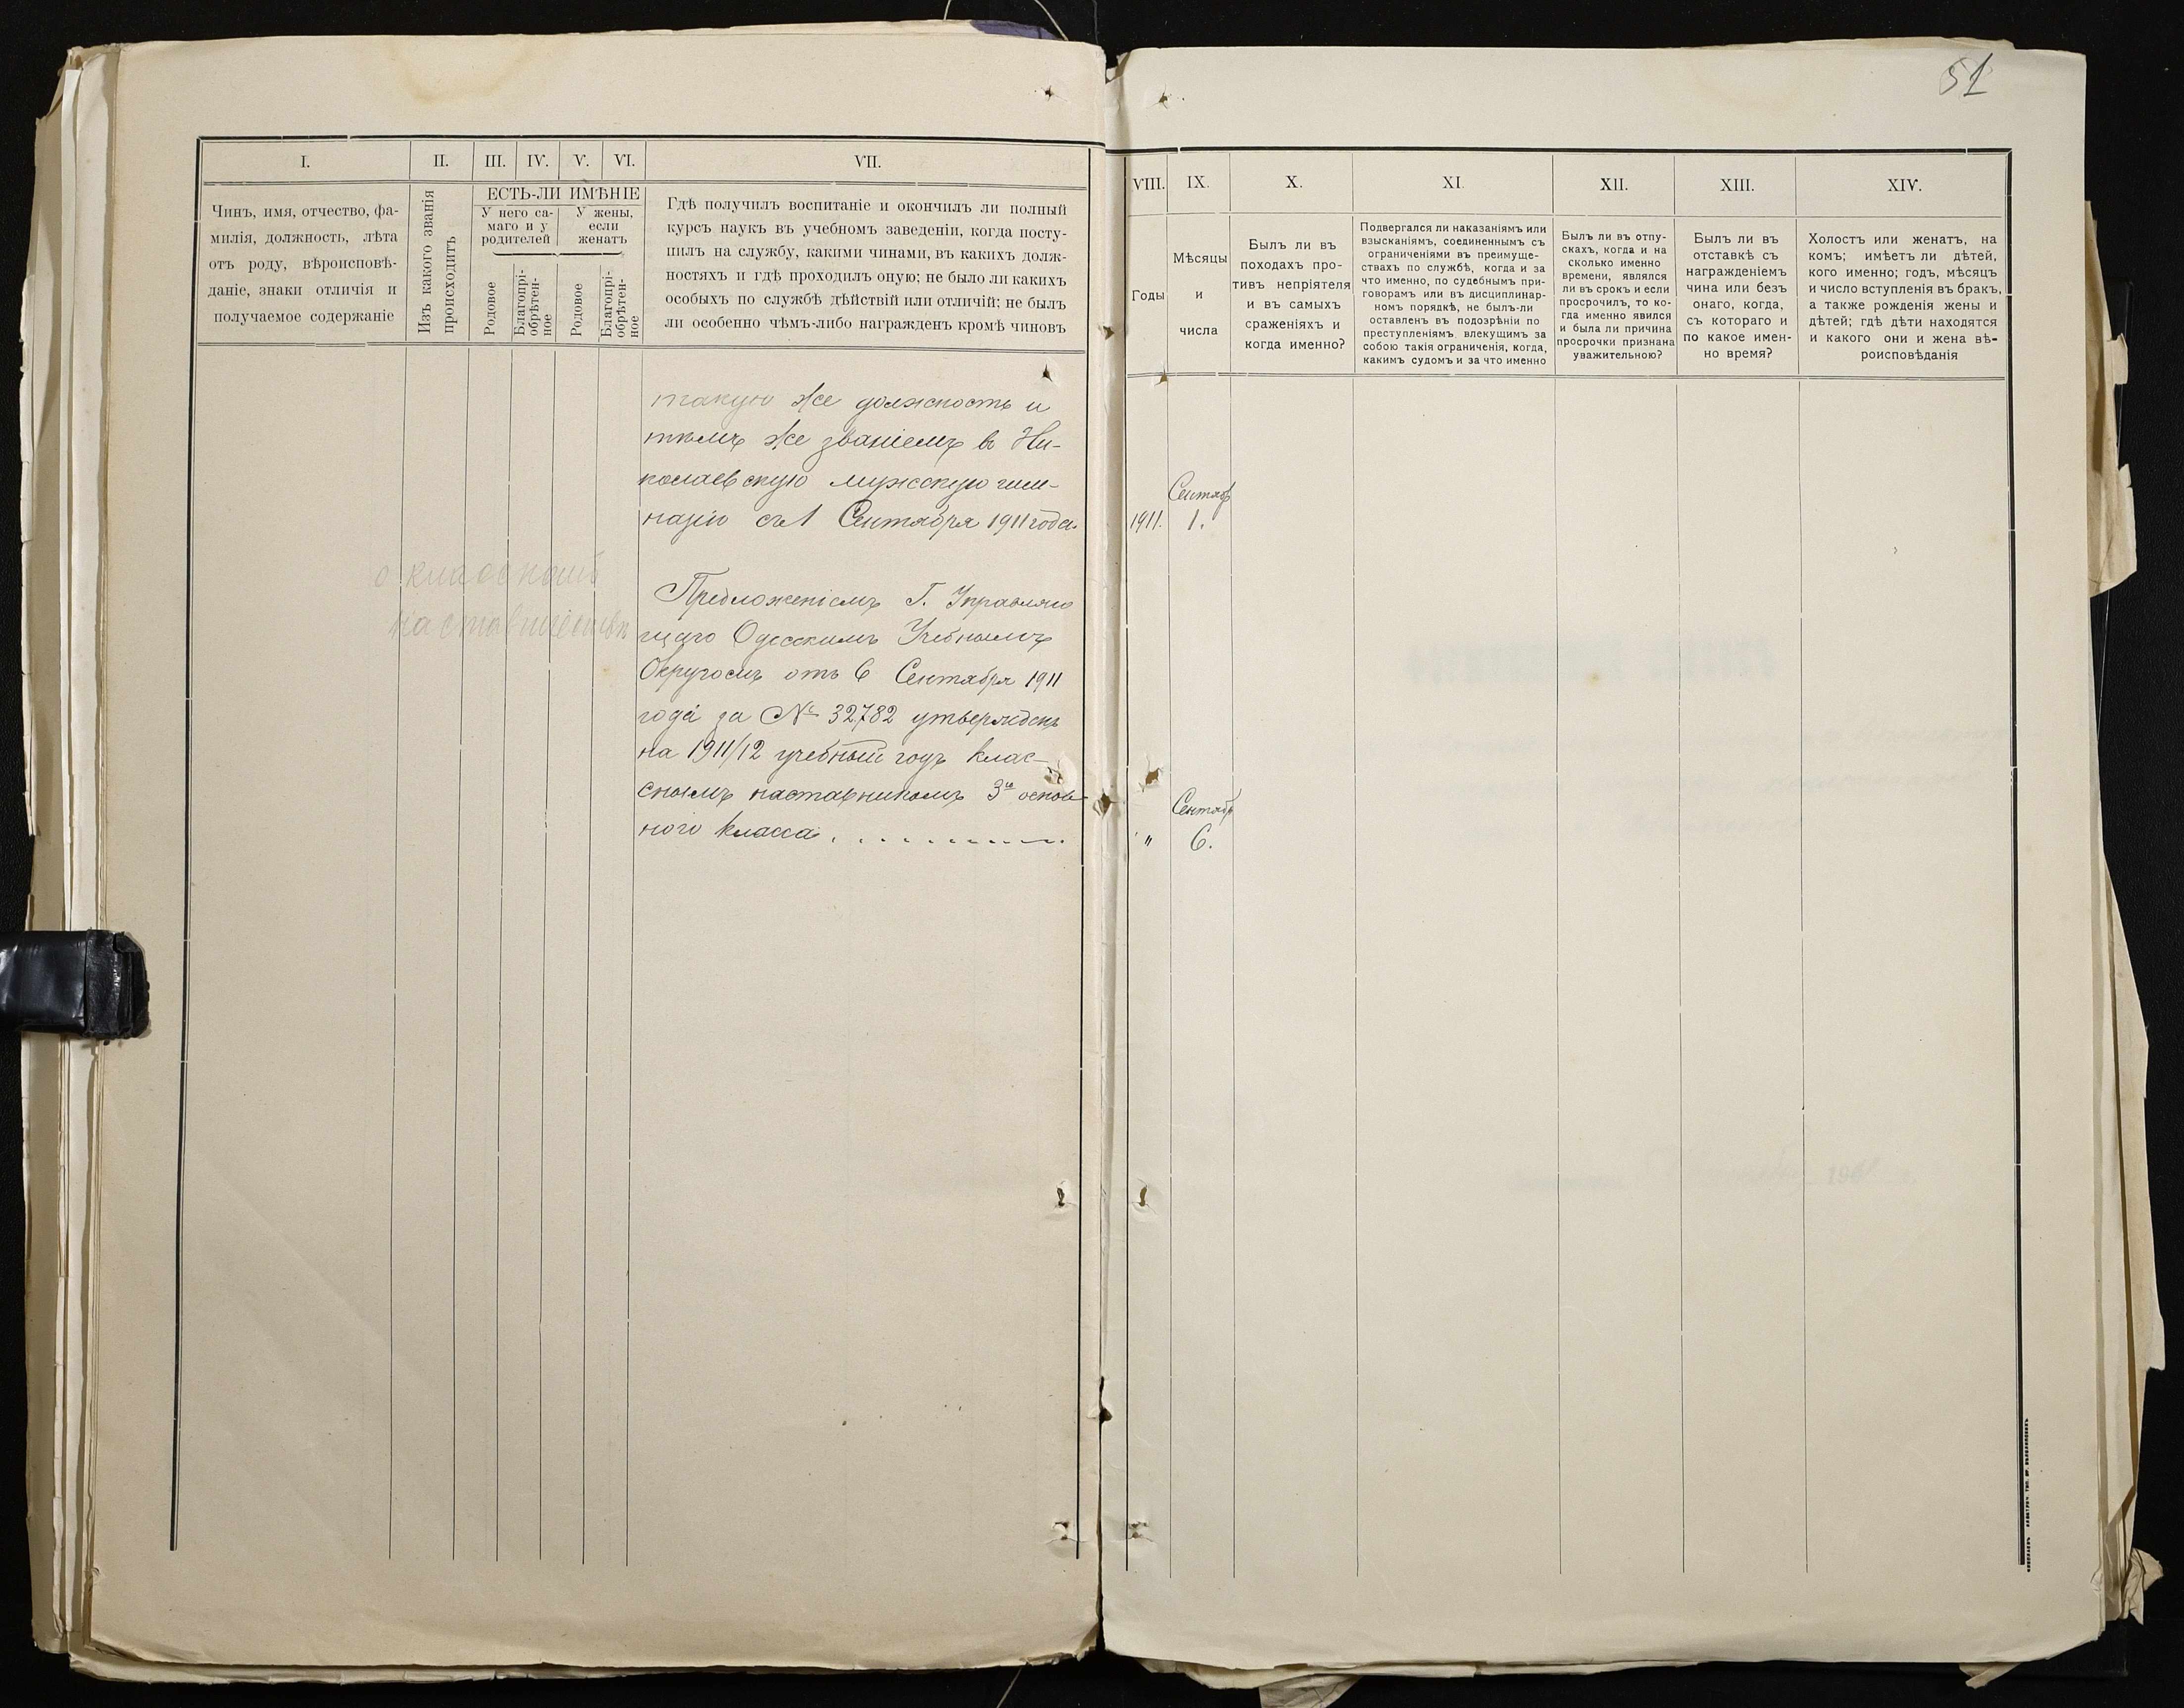 51
I.
II.
III.
IV.
V.
VI.
VII.
Чинъ, имя, отчество, фа-
милія, должность, лѣта
отъ роду, вѣроисповѣ-
даніе, знаки отличія и
получаемое содержаніе
Изъ какого званія
происходитъ
ЕСТЬ-ЛИ ИМѢНІЕ
У него са-
маго и у
родителей
У жены,
если
женатъ
Родовое
Благопрі-
обрѣтен-
ное
Родовое
Благопрі-
обрѣтен-
ное
Гдѣ получилъ воспитаніе и окончилъ ли полный
курсъ наукъ въ учебномъ заведеніи, когда посту-
пилъ на службу, какими чинами, въ какихъ долж-
ностяхъ и гдѣ проходилъ оную; не было ли какихъ
особыхъ по службѣ дѣйствій или отличій; не былъ
ли особенно чѣмъ-либо награжденъ кромѣ чиновъ
такую же должность и
тѣмъ же званіемъ въ Ни-
колаевскую мужскую гим-
назію съ 1 Сентября 1911 года.
о классномъ
наставничествѣ
Предложеніемъ Г. Управляю
щаго Одесскимъ Учебнымъ
Округомъ отъ 6 Сентября 1911
года за № 32782 утвержденъ
на 1911/12 учебный годъ клас-
снымъ наставникомъ 3го основ-
ного класса.
VIII.
IX.
X.
XI.
XII.
XIII.
XIV.
Годы
Мѣсяцы
и
числа
Былъ ли въ
походахъ про-
тивъ непріятеля
и въ самыхъ
сраженіяхъ и
когда именно?
Подвергался ли наказаніямъ или
взысканіямъ, соединеннымъ съ
ограниченіями въ преимуще-
ствахъ по службѣ, когда и за
что именно, по судебнымъ при-
говорамъ или въ дисциплинар-
номъ порядкѣ, не былъ-ли
оставленъ въ подозрѣніи по
преступленіямъ влекущимъ за
собою такія ограниченія, когда,
какимъ судомъ и за что именно
Былъ ли въ отпу-
скахъ, когда и на
сколько именно
времени, являлся
ли въ срокъ и если
просрочилъ, то ко-
гда именно явился
и была ли причина
просрочки признана
уважительною?
Былъ ли въ
отставкѣ съ
награжденіемъ
чина или безъ
онаго, когда,
съ котораго и
по какое имен-
но время?
Холостъ или женатъ, на
комъ; имѣетъ ли дѣтей,
кого именно; годъ, мѣсяцъ
и число вступленія въ бракъ,
а также рожденія жены и
дѣтей; гдѣ дѣти находятся
и какого они и жена вѣ-
роисповѣданія
Сентяб
1911. 1.
Сентяб
" 6.